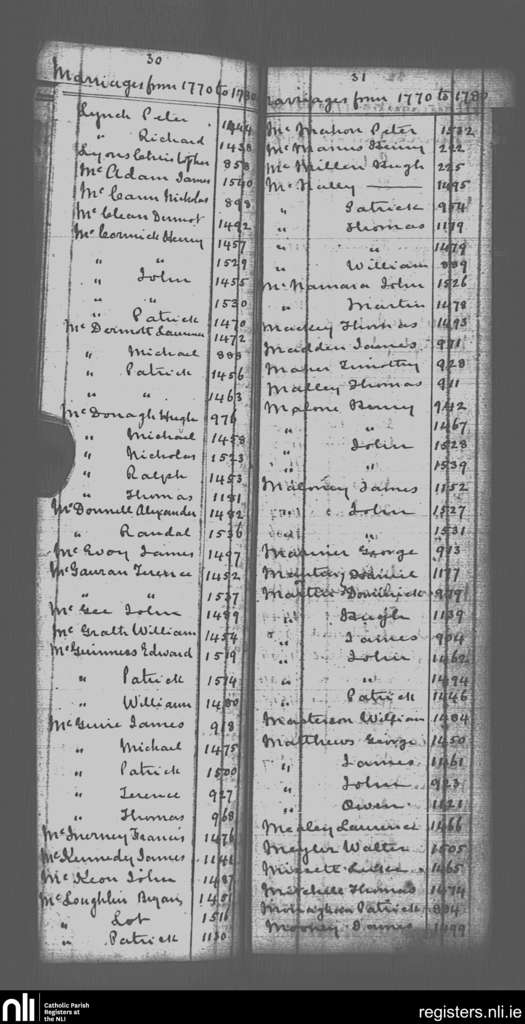 30
Marriages from 1770 to 1780
Lynch Peter 1444
" Richard 1438
Lyons Christopher 858
McAdam James 1540
McCann Nicholas 898
McClean Dermot 1492
McCormick Henry 1457
" " 1529
" John 1455
" " 1530
" Patrick 1470
McDermott Laurence 1472
" Michael 883
" Patrick 1456
" " 1463
McDonagh Hugh 976
" Michael 1458
" Nicholas 1523
" Ralph 1453
" Thomas 1181
McDonnell Alexander 1482
" Randal 1536
McEvoy James 1497
McGauran Terence 1452
" " 1537
McGee John 1489
McGrath William 1454
McGuinness Edward 1519
" Patrick 1514
" William 1480
McGuire James 918
" Michael 1475
" Patrick 1500
" Terence 927
" Thomas 968
McInerney Francis 1476
McKennedy James 1141
McKeon John 1487
McLoughlin Bryan 1451
" Lot 1516
" Patrick 1130
31
Marriages from 1770 to 1780
McMahon Peter 1532
McManus Henry 222
McMillen Hugh 225
McNally — 1495
" Patrick 954
" Thomas 1179
" " 1479
" William 889
McNamara John 1526
" Martin 1478
Mackey Thomas 1493
Madden James 971
Maher Timothy 928
Malley Thomas 911
Malone Henry 942
" " 1467
" John 1528
" " 1539
Maloney James 1152
" John 1527
" " 1531
Marmier George 913
1177
Martin Dominick 979
" Hugh 1139
" James 904
" John 1462
" " 1494
" Patrick 1446
Masterson William 1484
Matthews George 1450
" James 1461
" John 923
" Owen 1121
Mealey Laurence 1466
Meyler Walter 1505
1465
Mitchell Thomas 1474
Monaghan Patrick 884
Mooney James 1499
nli
Catholic Parish
Registers at
the NLI
registers.nli.ie